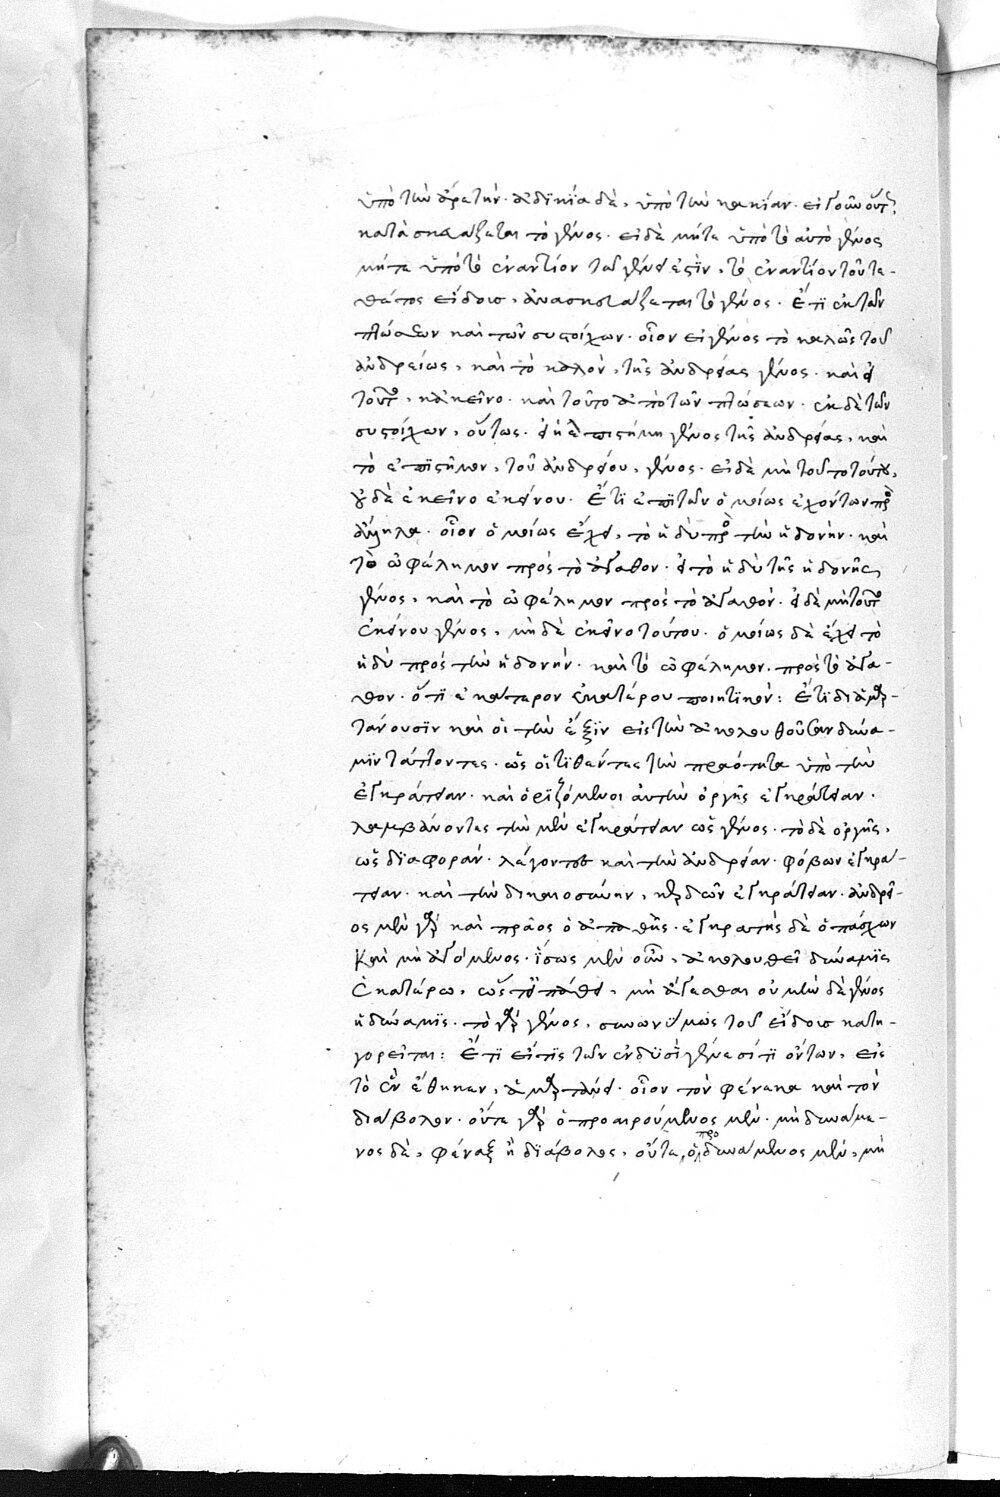 ὑπὸ τὴν ἀρετήν· ἀδικία δὲ, ὑπὸ τὴν κακίαν· εἰ γοῦν οὕτ,
κατασκευάζεται τὸ γένος· εἰ δὲ μήτε ὑπὸ τὸ αὐτὸ γένος
μήτε ὑπὸ τὸ ἐναντίον τοῦ γένει ἐστὶν, τὸ ἐναντίον τοῦ τε-
θέντος εἴδοις, ἀνασκευάζεται τὸ γένος· Ἔτι ἐκ τῶν
πτώσεων καὶ τῶν συστοίχων· οἷον εἰ γένος τὸ καλῶς τοῦ
ἀνδρείως, καὶ τὸ καλὸν, τῆς ἀνδρείας γένος· καὶ εἰ
τοῦτο, κἀκεῖνο· καὶ τοῦτο ἀπὸ τῶν πτώσεων· ἐκ δὲ τῶν
συστοίχων, οὕτως· εἰ ἡ ἐπιστήμη γένος τῆς ἀνδρείας, καὶ
τὸ ἐπιστῆμον, τοῦ ἀνδρείου, γένος· εἰ δὲ μὴ τοῦτο τούτου,
οὐδὲ ἐκεῖνο ἐκείνου· Ἔτι ἐπὶ τῶν ὁμοίως ἐχόντων πρὸς
ἄλληλα· οἷον ὁμοίως ἔχει, τὸ ἡδὺ πρὸς τὴν ἡδονήν· καὶ
τὸ ὠφέλημον πρὸς τὸ ἀγαθον· εἰ τὸ ἡδὺ τῆς ἡδονῆς
γένος, καὶ τὸ ὠφέλημον πρὸς τὸ ἀγαθόν· εἰ δὲ μὴ τοῦτο
ἐκείνου γένος, μηδὲ ἐκεῖνο τούτου· ὁμοίως δὲ ἔχει τὸ
ἡδὺ πρὸς τὴν ἡδονήν· καὶ τὸ ὠφέλημον, πρὸς τὸ ἀγα-
θον· ὅτι ἑκάτερον ἑκατέρου ποιητικόν: Ἔτι διαμαρ-
τάνουσιν καὶ οἱ τὴν ἕξιν εἰς τὴν ἀκολουθοῦσαν δύνα-
μιν τάττοντες· ὡς οἱ τιθέντες τὴν πραότητα ὑπὸ τὴν
ἐγκράτειαν· καὶ ὁριζόμενοι αὐτὴν ὀργῆς ἐγκράτειαν·
λαμβάνοντες τὴν μὲν ἐγκράτειαν ὡς γένος· τὸ δὲ ὀργῆς,
ὡς διαφοράν· λέγοντες καὶ τὴν ἀνδρείαν· φόβων ἐγκρά-
τειαν· καὶ τὴν δικαιοσύνην, κερδῶν ἐγκράτειαν· ἀνδρεῖ-
ος μὲν γὰρ καὶ πρᾶος ὁ ἀπαθὴς· ἐγκρατὴς δὲ ὁ πάσχων
καὶ μὴ ἀγόμενος· ἴσως μὲν οὖν, ἀκολουθεῖ δύναμις
ἑκατέρω, ὥστε πάθει, μὴ ἄγεσθαι οὐ μὴν δὲ γένος
ἡ δύναμις· τὸ γὰρ γένος, συνωνύμως τοῦ εἴδοις κατη-
γορεῖται: Ἔτι εἴ τις τῶν ἐν δυσὶ γένεσί τι ὄντων, εἰς
τὸ ἓν ἔθηκεν, ἁμαρτάνει· οἷον τὸν φένακα καὶ τὸν
διάβολον· οὔτε γὰρ ὁ προαιρούμενος μὲν· μὴ δυνάμε-
νος δὲ, φέναξ ἢ διάβολος, οὔτε, ὁ προ δυνάμενος μὲν, μὴ